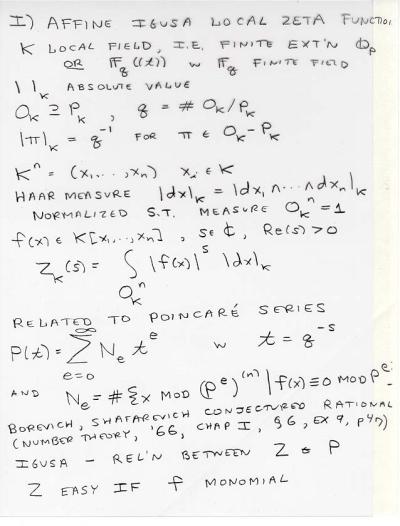 I) AFFINE IGUSA LOCAL ZETA FUNCTION
K LOCAL FIELD, I.E. FINITE EXT'N Q_p
OR F_q((t)) w F_q FINITE FIELD
| |_K ABSOLUTE VALUE
O_K ⊇ P_K , q = # O_K/P_K
|π|_K = q^{-1} FOR π ∈ O_K - P_K
K^n = (x_1, ..., x_n) x_i ∈ K
HAAR MEASURE |dx|_K = |dx_1 ∧ ... ∧ dx_n|_K
NORMALIZED S.T. MEASURE O_K^n = 1
f(x) ∈ K[x_1, .., x_n] , s ∈ ℂ, Re(s) > 0
Z_K(s) = ∫_{O_K^n} |f(x)|^s |dx|_K
RELATED TO POINCARÉ SERIES
P(t) = ∑_{e=0}^∞ N_e t^e w t = q^{-s}
AND N_e = #{x MOD (P^e)^{(n)} | f(x) ≡ 0 MOD P^e
BOREVICH, SHAFAREVICH CONJECTURED RATIONAL
(NUMBER THEORY, '66, CHAP I, §6, EX 9, p47)
IGUSA - REL'N BETWEEN Z & P
Z EASY IF f MONOMIAL